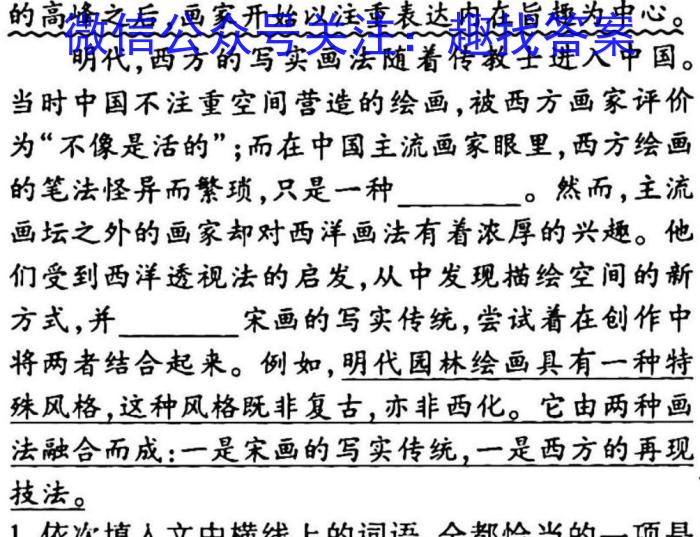 的高峰之后,画家开始以注重表达内在旨趣为中心。
微信公众号关注:趣找答案
明代,西方的写实画法随着传教士进入中国。
当时中国不注重空间营造的绘画,被西方画家评价
为“不像是活的”;而在中国主流画家眼里,西方绘画
的笔法怪异而繁琐,只是一种________。然而,主流
画坛之外的画家却对西洋画法有着浓厚的兴趣。他
们受到西洋透视法的启发,从中发现描绘空间的新
方式,并________宋画的写实传统,尝试着在创作中
将两者结合起来。例如,明代园林绘画具有一种特
殊风格,这种风格既非复古,亦非西化。它由两种画
法融合而成:一是宋画的写实传统,一是西方的再现
技法。
1.依次填入文中横线上的词语,全都恰当的一项是